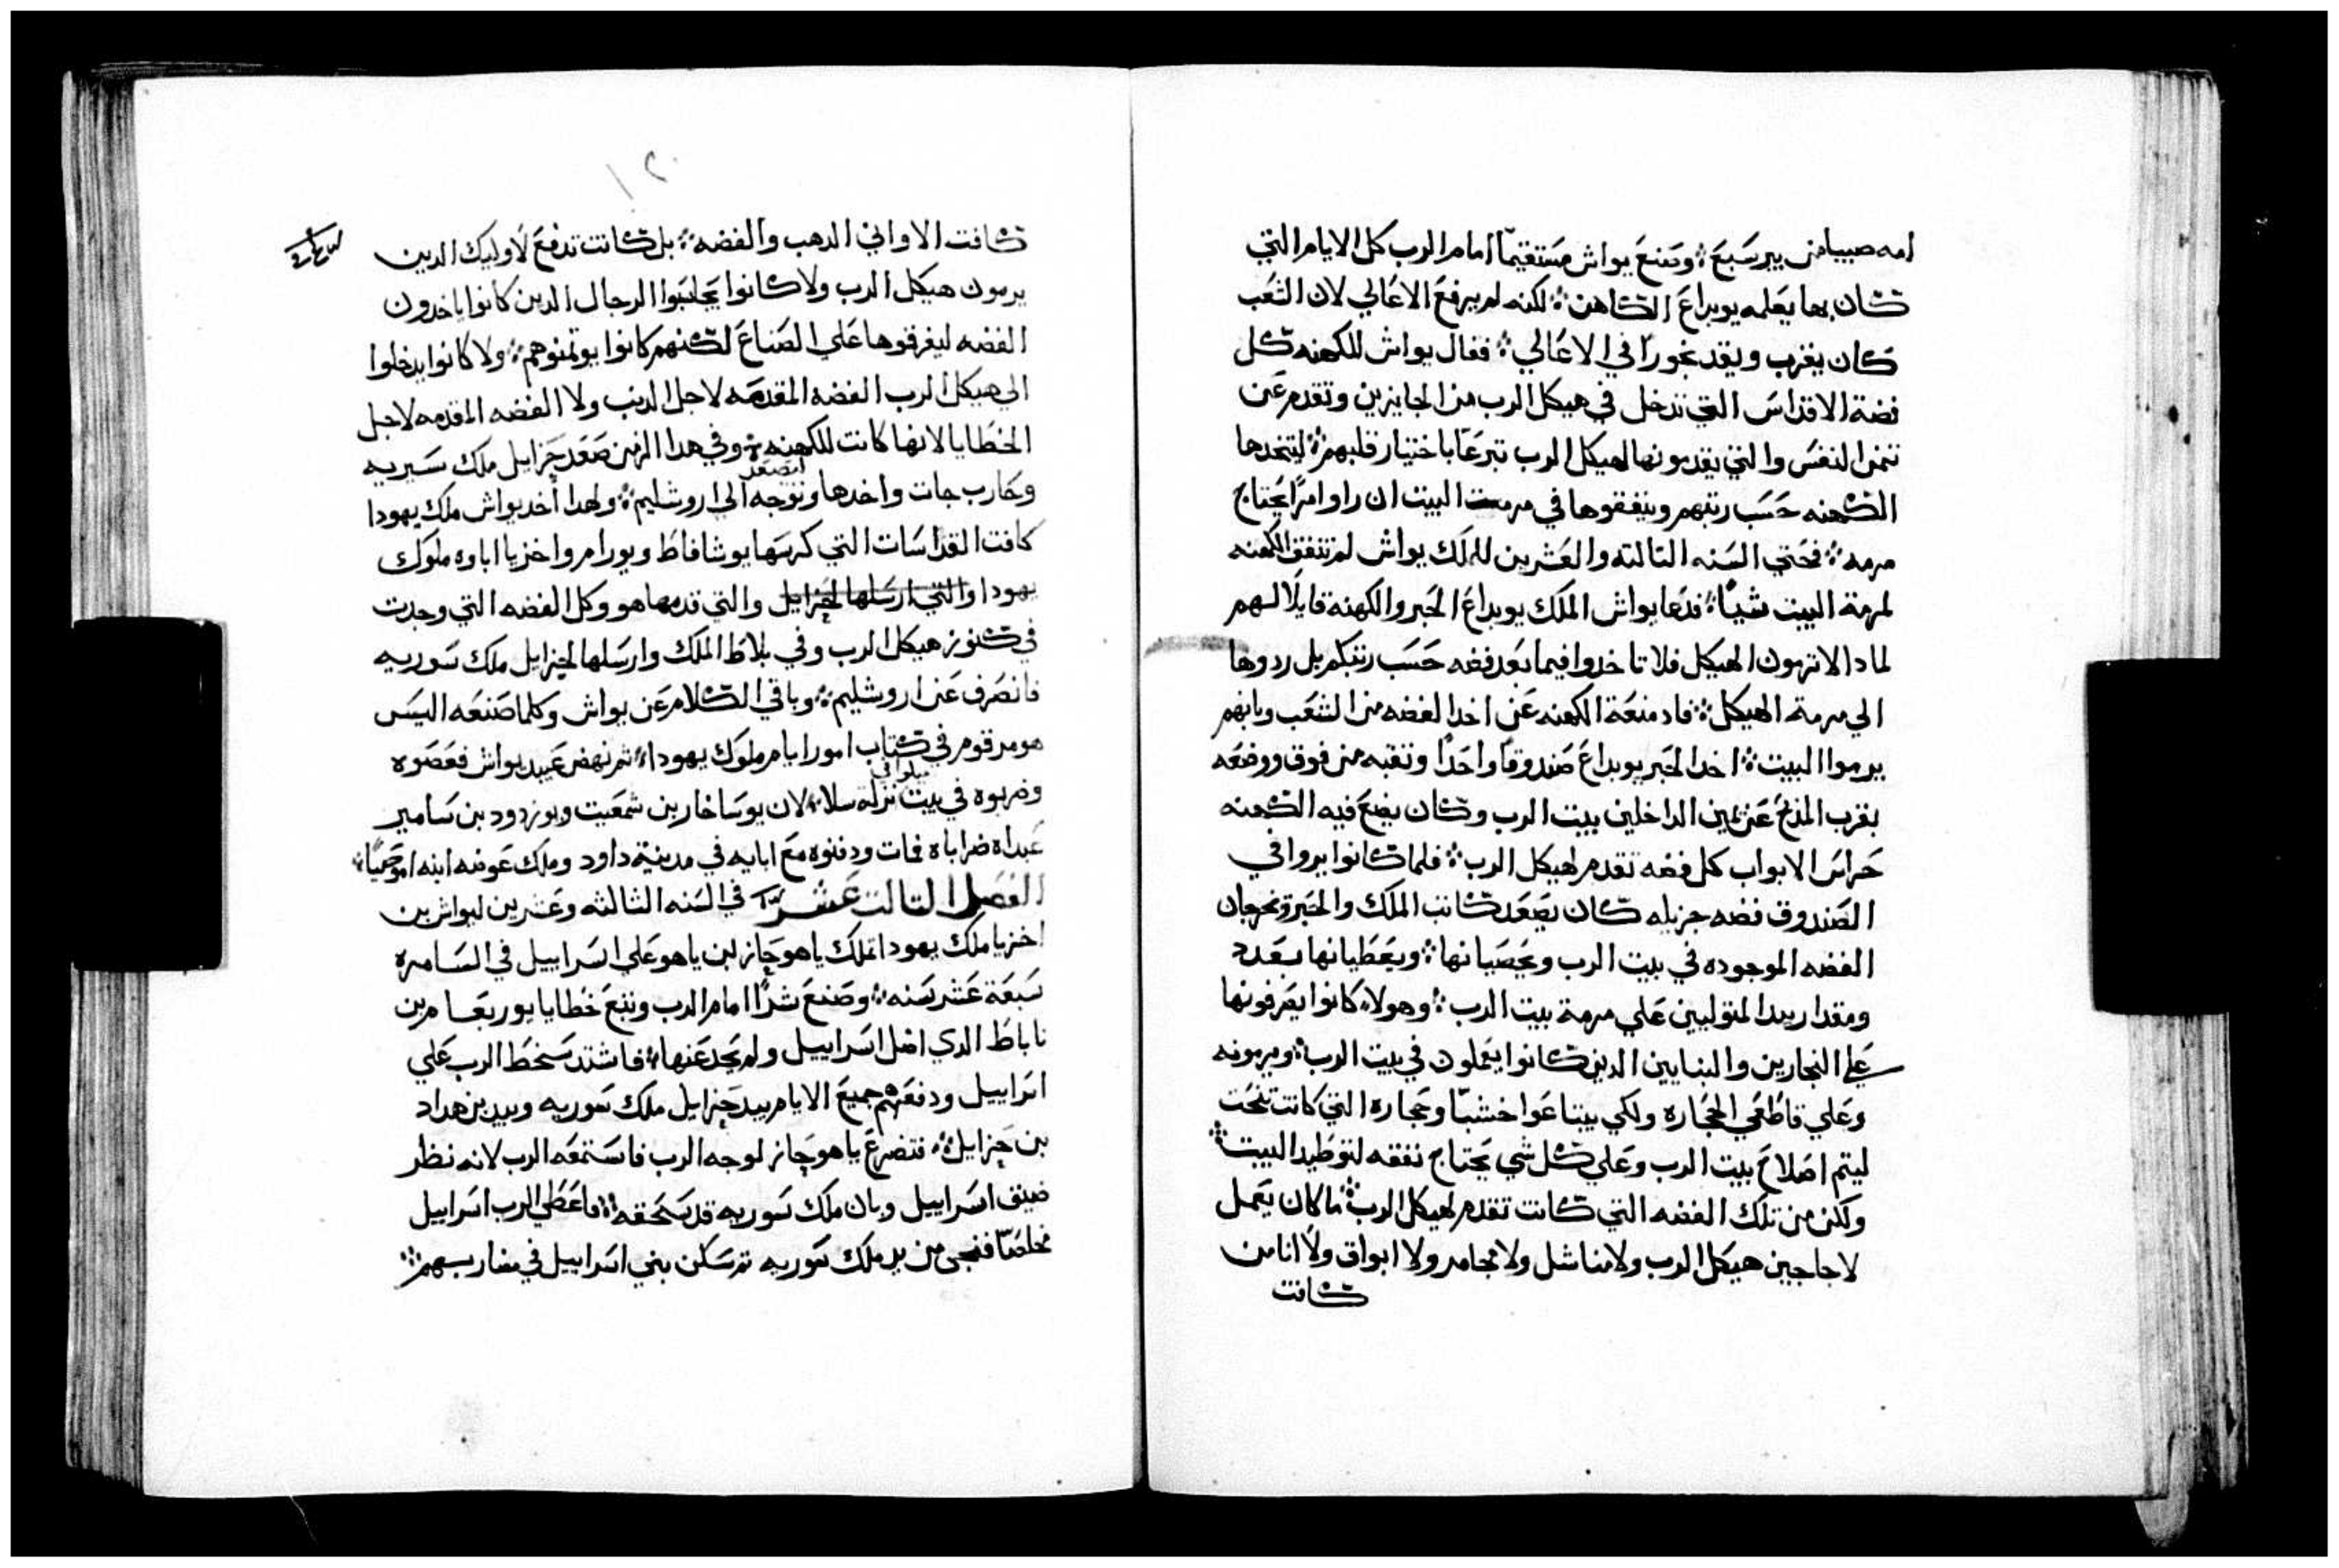 امه صبيا من بير سَبعَ ⁘ وصَنعَ يواش مَستقيمًا امام الرب كل الايام التي
كان بها يعَلمه يويداعَ الكاهن ⁘ لكنه لم يرفعَ الاعَالي لان الشعَب
كان يقرب ويقد بخورًا في الاعَالي ⁘ فقال يواش للكهنه كل
فضة الاقداسَ التي تدخل في هيكل الرب من الجايزين وتقدم عَن
تمن النفسَ والتي يقدمونها لهيكل الرب تبرعَا باختيار قلبهم ⁘ ليتخدها
الكهنه حَسَب رتبهم وينفقوها في مرمت البيت ان راوا امرًا يحَتاج
مرمه ⁘ فحَتي السَنه التالته والعَشرين للملك يواش لم تنفق الكهنه
لمرمة البيت شيًا ⁘ فدعَا يواش الملك يويداعَ الحَبر والكهنة قايلًا لهم
لمادا لا ترمون الهيكل فلا تاخدوا فيما بعَد فضه حَسَب رتبكم بل ردوها
الي مرمة الهيكل ⁘ فاد منعَة الكهنه عَن اخد الفضه من الشعَب وبانهم
يرموا البيت ⁘ اخد الحَبر يويداعَ صَندوقًا واحَدًا وتقبه من فوق ووضعَه
بقرب المذبحَ عَن يمين الداخلين بيت الرب وكان يضعَ فيه الكهنه
حَراسَ الابواب كل فضه تقدم لهيكل الرب ⁘ فلما كانوا يروا في
الصَندوق فضه جزيله كان يصَعَد كاتب الملك والحَبر ويخرجان
الفضه الموجوده في بيت الرب ويحَصَيانها ⁘ ويعَطيانها بعَدد
ومقدار بيد المتوليين عَلي مرمة بيت الرب ⁘ وهولاء كانوا يصَرفونها
عَلي النجارين والبنايين الدين كانوا يعَملون في بيت الرب ⁘ ويرمونه
وعَلي قاطعَي الحَجاره ولكي يبتاعَوا خشبًا وحَجاره التي كانت تنحَت
ليتم اصَلاحَ بيت الرب وعَلي كل شي يحَتاج نفقه لتوطيد البيت ⁘
ولكن من تلك الفضه التي كانت تقدم لهيكل الرب ⁘ ما كان يعَمل
لاجاجين هيكل الرب ولا مناشل ولا مجامر ولا ابواق ولا انا من
كافت
١٢٠
كافت الاواني الدهب والفضه ⁘ بل كانت تدفعَ لأوليك الدين
يرمون هيكل الرب ولا كانوا يحَاسَبوا الرجال الدين كانوا ياخدون
الفضه ليفرقوها عَلي الصَناعَ لكنهم كانوا يوتمنوهم ⁘ ولا كانوا يدخلوا
الي هيكل الرب الفضه المقدمه لاجل الدنب ولا الفضه المقدمه لاجل
الخطايا لانها كانت للكهنه ⁘ وفي هدا الزمن صَعَد حَزايل ملك سَيريه
وحَارب جات واخدها وتوجه الي اروشليم ⁘ ولهدا أخد يواش ملك يهودا
كافت القداسَات التي كرسَها يوشافاط ويورام واخزيا اباوه ملوك
يهودا والتي ارسَلها لحَزايل والتي قدمها هو وكل الفضه التي وجدت
في كنوز هيكل الرب وفي بلاط الملك وارسَلها لحَزايل ملك سَوريه
فانصَرف عَن اروشليم ⁘ وباقي الكلام عَن يواش وكلما صَنعَه اليسَ
هو مرقوم في كتاب امور ايام ملوك يهودا ⁘ ثم نهض عَبيد يواش فعَصَوه
وضربوه في بيت نزلة سلا ⁘ لان يوسَاخار بن شمعَيت ويوزدود بن سَامير
عَبداه ضراباه فمات ودفنوه معَ ابايه في مدينة داود وملك عَوضه ابنه اموصَيًا ⁘
الفصَل التالت عَشر في السَنه الثالثه وعَشرين ليواش بن
اخزيا ملك يهودا تملك ياهوحَاز ابن ياهو عَلي اسَراييل في السَامره
سَبعَة عَشر سَنه ⁘ وصَنعَ شرًا امام الرب وتبعَ خطايا يوربعَام بن
ناباط الدي اضل اسَراييل ولم يحَد عَنها ⁘ فاشتد سَخط الرب عَلي
اسَراييل ودفعَهم جميعَ الايام بيد حَزايل ملك سَوريه وبيد بن هداد
بن حَزايل ⁘ فتضرعَ ياهوحَاز لوجه الرب فاسَتمعَه الرب لانه نظر
ضيق اسَراييل وبان ملك سَوريه قد سَحَقه ⁘ فاعَطي الرب اسَراييل
مخلصَا فنجي من يد ملك سَوريه تم سَكن بني اسَراييل في مضاربهم ⁘